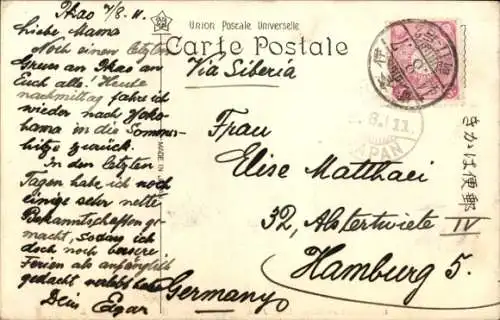 Ikao 7/8. 11.
Liebe Mama
Noch einen letzten
Gruss an Ikao an
Euch alle! Heute
nachmittag fahre ich
wieder nach Yoko-
hama in die Sommer-
hitze zurück.
In den letzten
Tagen habe ich noch
einige sehr nette
Bekanntschaften ge-
macht, sodass ich
doch noch bessere
Ferien als anfänglich
gedacht verlebt habe.
Dein Edgar
Union Postale Universelle
Carte Postale
Via Siberia
Frau
Elise Matthaei
32, Alstertwiete IV
Hamburg 5.
Germany
きがは便郵
MADE IN
8. 11
JAPAN